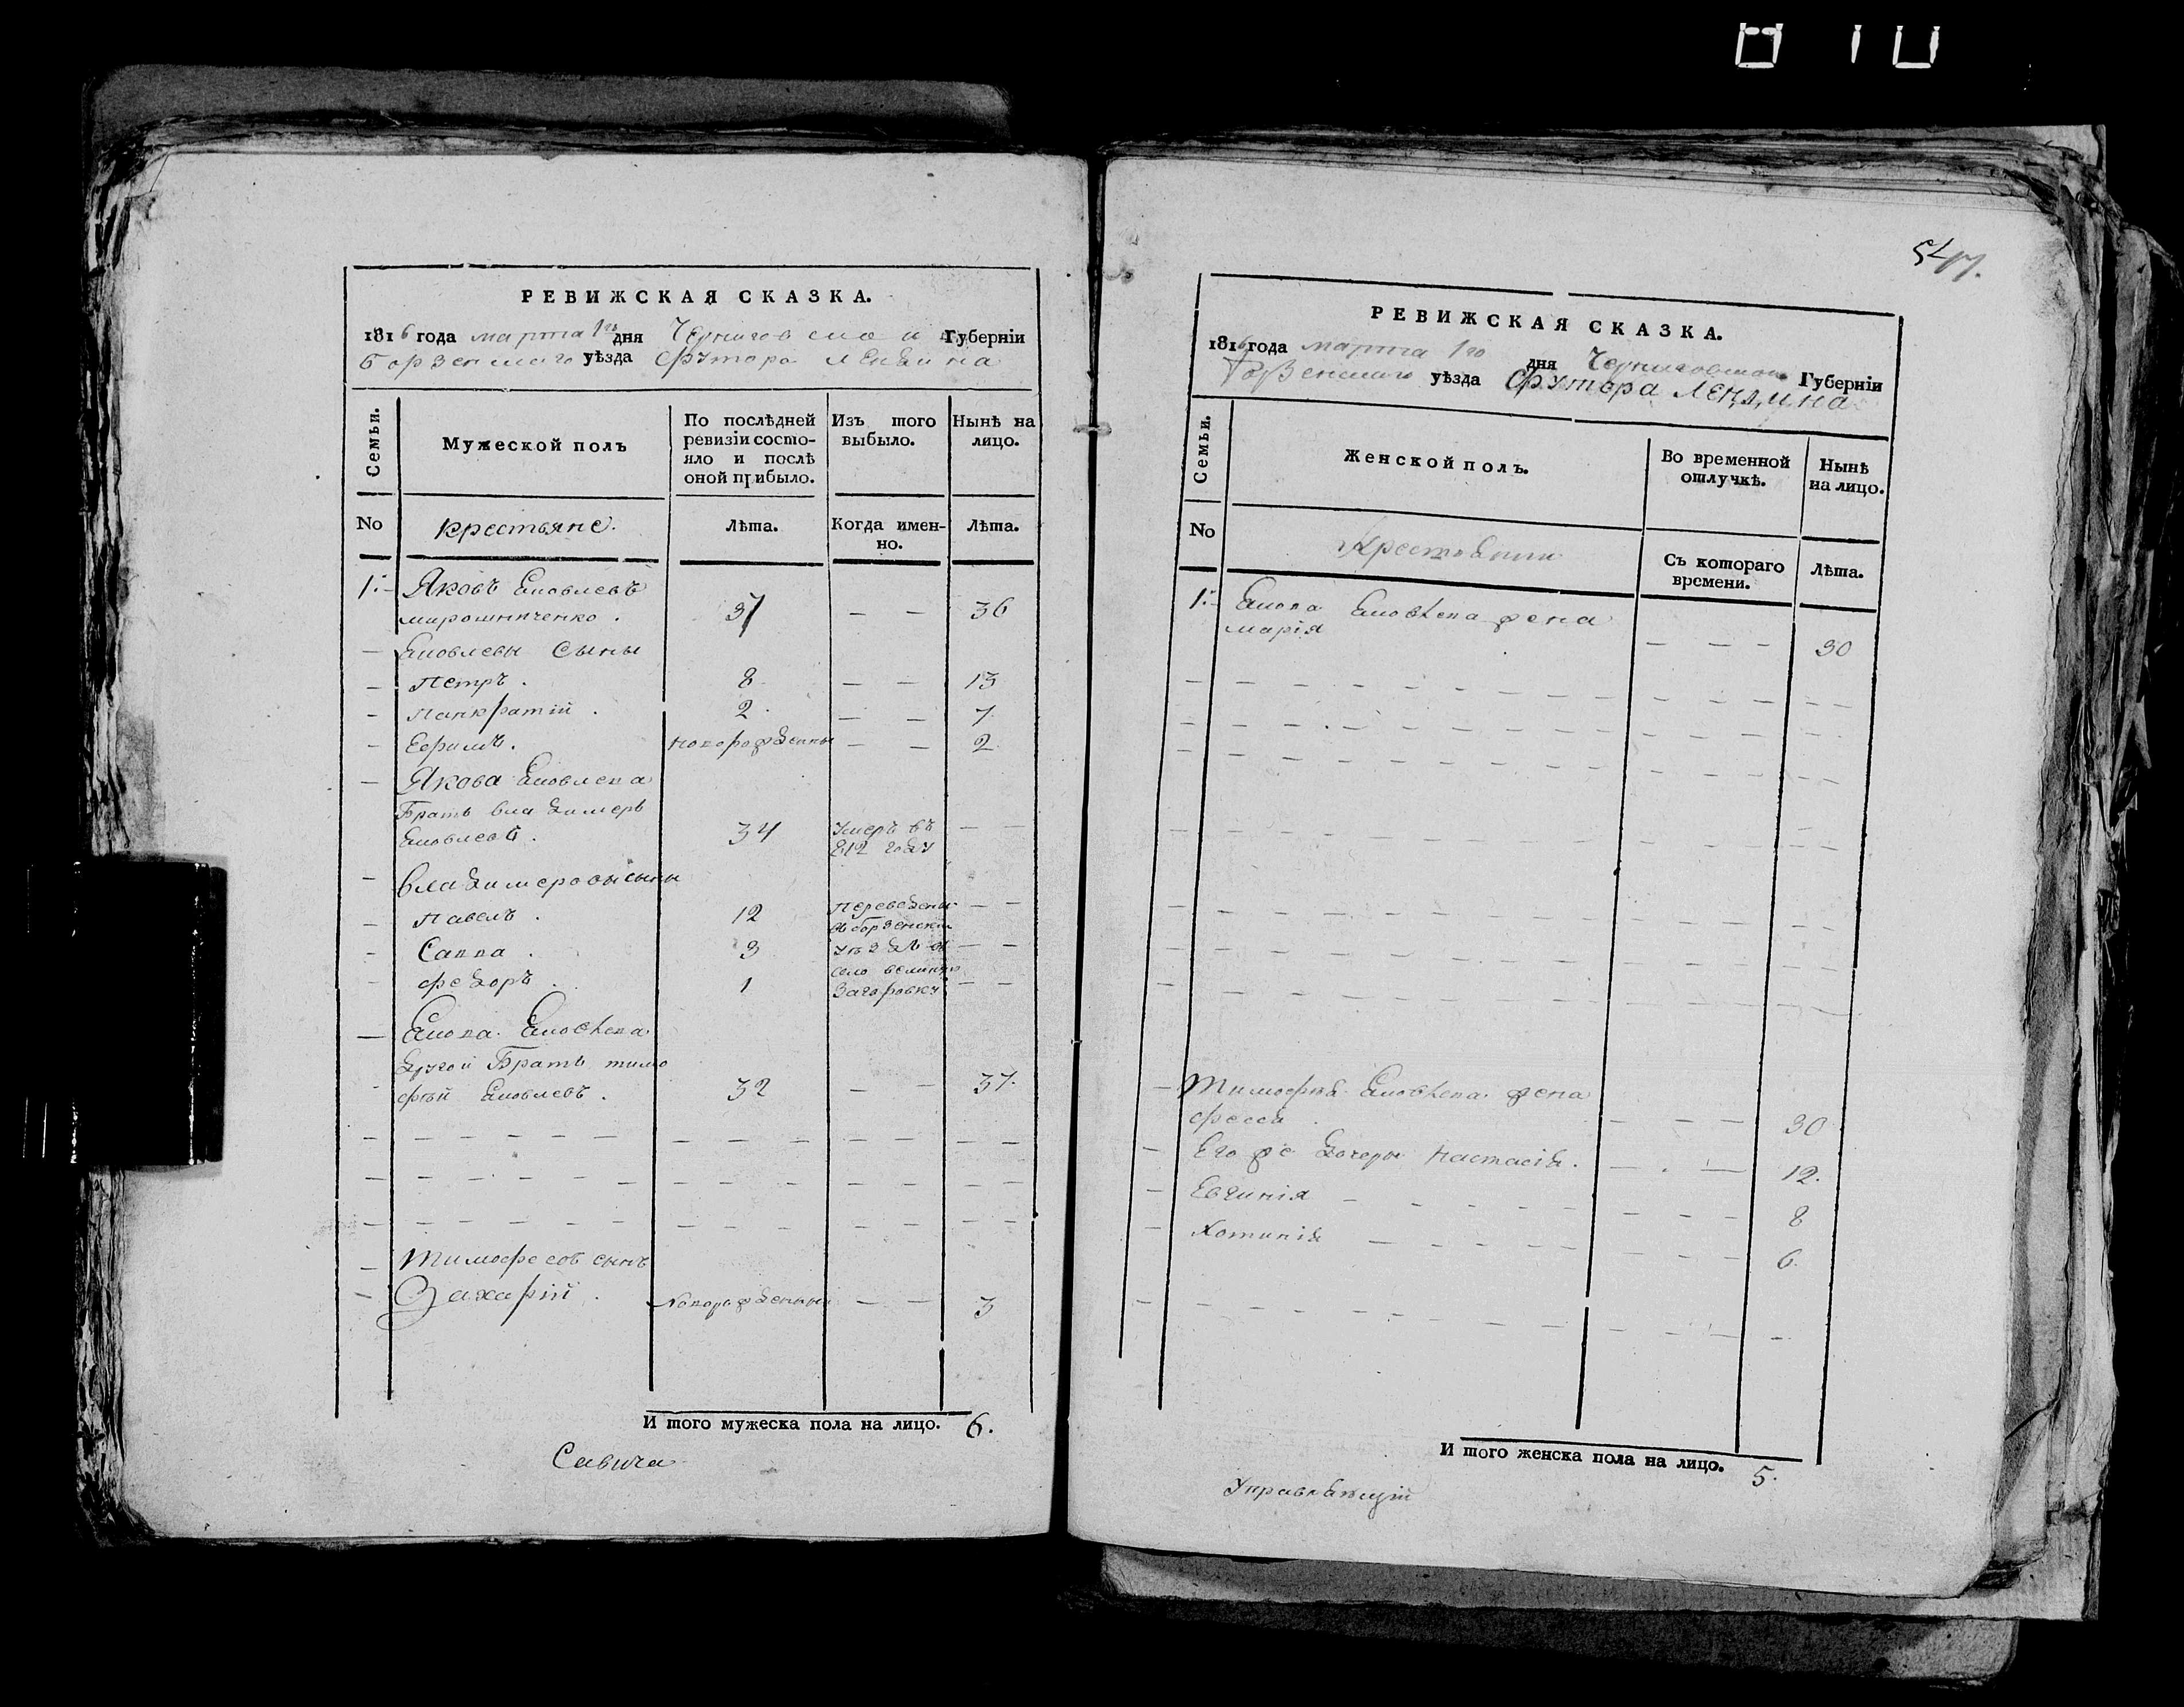 547.
РЕВИЖСКАЯ СКАЗКА.
1816 года марта 1го дня Черниговской Губерніи
Борзенскаго уѣзда Футора
Семьи.
Мужеской полъ
По послѣдней ревизіи состо-
яло и послѣ
оной прибыло.
Изъ того выбыло.
Нынѣ на лицо.
No
крестьяне.
Лѣта.
Когда имен-
но.
Лѣта.
1: Яковъ Яковлевъ
мирошниченко . 37 — — 36
— Яковлевы Сыны
— Петръ . 8 — — 13
— Панкратій . 2 . — — 7
— Ефимъ . новорожденны — — 2
— Якова Яковлева
Братъ владимеръ
Яковлевъ . 34 Умеръ въ 812 году — —
— владимеровы сыны
— Павелъ . 12 Переведены — —
въ борзенскій
— Савва . 3 уездъ въ — —
село великую
— федоръ . 1 Загоровку — —
— Якова Яковлева
другой Братъ тимо
фѣй Яковлевъ . 32 — — 37.
— Тимофеевъ сынъ
— Захарій . Новорожденный — — 3
И того мужеска пола на лицо. 6.
Савича
РЕВИЖСКАЯ СКАЗКА.
1816 года марта 1го дня Черниговской Губерніи
Борзенскаго уѣзда Футора
Семьи.
Женской полъ.
Во временной
отлучкѣ.
Нынѣ
на лицо.
No
Съ котораго
времени.
Лѣта.
1: Якова Яковлева жена
марія — — — 30
— Тимофѣя Яковлева жена
фесся . — — — 30
— Его же дочеры Настасія . — . — 12.
— Евгинія — — — — 8
— Хотинія — — — — 6.
И того женска пола на лицо. 5.
Управляющій